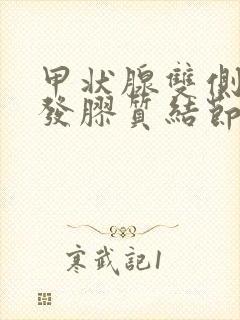 甲状腺雙側
發膠質結節
寒武記1